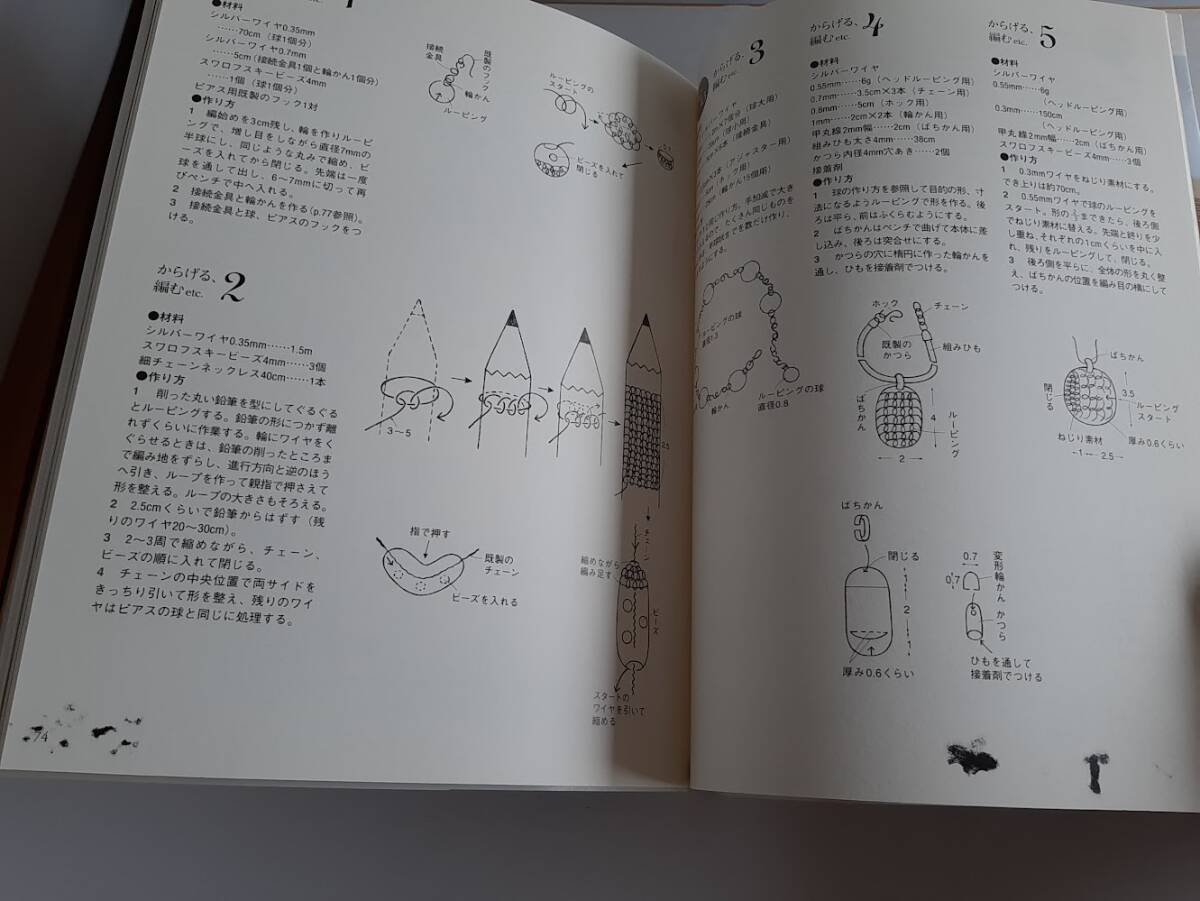 etc. 1
●材料
シルバーワイヤ0.35mm
……70cm（球1個分）
シルバーワイヤ0.7mm
……5cm（接続金具1個と輪かん1個分）
スワロフスキービーズ4mm
……1個（球1個分）
ピアス用既製のフック1対
●作り方
1 編始めを3cm残し、輪を作りルーピ
ングで、増し目をしながら直径7mmの
半球にし、同じような丸みで縮め、ビ
ーズを入れてから閉じる。先端は一度
球を通して出し、6〜7mmに切って再
びペンチで中へ入れる。
2 接続金具と輪かんを作る(p.77参照)。
3 接続金具と球、ピアスのフックをつ
ける。
接続
金具
既製の
フック
輪かん
ルーピング
ルーピングの
スタート
ビーズを入れて
閉じる
からげる、
編むetc. 2
●材料
シルバーワイヤ0.35mm……1.5m
スワロフスキービーズ4mm……3個
細チェーンネックレス40cm……1本
●作り方
1 削った丸い鉛筆を型にしてぐるぐる
とルーピングする。鉛筆の形につかず離
れずくらいに作業する。輪にワイヤをく
ぐらせるときは、鉛筆の削ったところま
で編み地をずらし、進行方向と逆のほう
へ引き、ループを作って親指で押さえて
形を整える。ループの大きさもそろえる。
2 2.5cmくらいで鉛筆からはずす（残
りのワイヤ20〜30cm）。
3 2〜3周で縮めながら、チェーン、
ビーズの順に入れて閉じる。
4 チェーンの中央位置で両サイドを
きっちり引いて形を整え、残りのワイ
ヤはピアスの球と同じに処理する。
3〜5
2.5
指で押す
既製の
チェーン
ビーズを入れる
チェーン
縮めながら
編み足す
ビーズ
スタートの
ワイヤを引いて
縮める
74
からげる、
編むetc. 3
ルーピングの球
輪かん
ルーピングの球
直径0.8
からげる、
編むetc. 4
●材料
シルバーワイヤ
0.55mm……6g（ヘッドルーピング用）
0.7mm……3.5cm×3本（チェーン用）
0.8mm……5cm（ホック用）
1mm……2cm×2本（輪かん用）
甲丸線2mm幅……2cm（ばちかん用）
組みひも太さ4mm……38cm
かつら内径4mm穴あき……2個
接着剤
●作り方
1 球の作り方を参照して目的の形、寸
法になるようルーピングで形を作る。後
ろは平ら、前はふくらむようにする。
2 ばちかんはペンチで曲げて本体に差
し込み、後ろは突合せにする。
3 かつらの穴に楕円に作った輪かんを
通し、ひもを接着剤でつける。
ホック
チェーン
既製の
かつら
組みひも
ばちかん
4
ルーピング
2
ばちかん
閉じる
2
厚み0.6くらい
0.7
0.7
変形輪かん
かつら
ひもを通して
接着剤でつける
からげる、
編むetc. 5
●材料
シルバーワイヤ
0.55mm……6g
（ヘッドルーピング用）
0.3mm……150cm
（ヘッドルーピング用）
甲丸線2mm幅……2cm（ばちかん用）
スワロフスキービーズ4mm……3個
●作り方
1 0.3mmワイヤをねじり素材にする。
でき上りは約70cm。
2 0.55mmワイヤで球のルーピングを
スタート。形の⅔まできたら、後ろ側
でねじり素材に替える。先端と終りを少
し重ね、それぞれの1cmくらいを中に入
れ、残りをルーピングして、閉じる。
3 後ろ側を平らに、全体の形を丸く整
え、ばちかんの位置を編み目の横にして
つける。
ばちかん
閉じる
3.5
ルーピング
スタート
ねじり素材
厚み0.6くらい
1
2.5